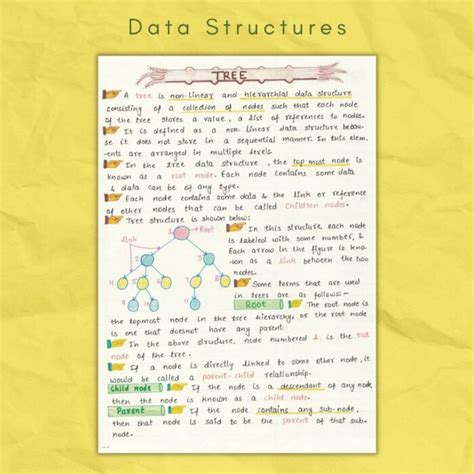 Data Structures
TREE
A tree is non-linear and hierarchial data structure
consisting of a collection of nodes such that each node
of the tree stores a value, a list of references to nodes.
It is defined as a non linear data structure becau-
se it does not store in a sequential manner. In this elem-
ents are arranged in multiple levels.
In the tree data structure, the top most node is
known as a root node. Each node contains some data
& data can be of any type.
Each node contains some data & the link or reference
of other nodes that can be called Children nodes.
Tree structure is shown below:
Root
1
Link
In this structure, each node
is labeled with some number, &
Each arrow in the figure is kno-
wn as a link between the two
nodes.
Some terms that are used
in trees are as follows:-
Root
The root node is
the topmost node in the tree hierarchy, or the root node
is one that doesnot have any parent
In the above structure, node numbered 1 is the root
node of the tree.
If a node is directly linked to some other node, it
would be called a parent-child relationship.
Child node
If the node is a descendant of any node
then the node is known as a child node.
Parent
If the node contains any sub-node,
then that node is said to be the parent of that sub-
node.